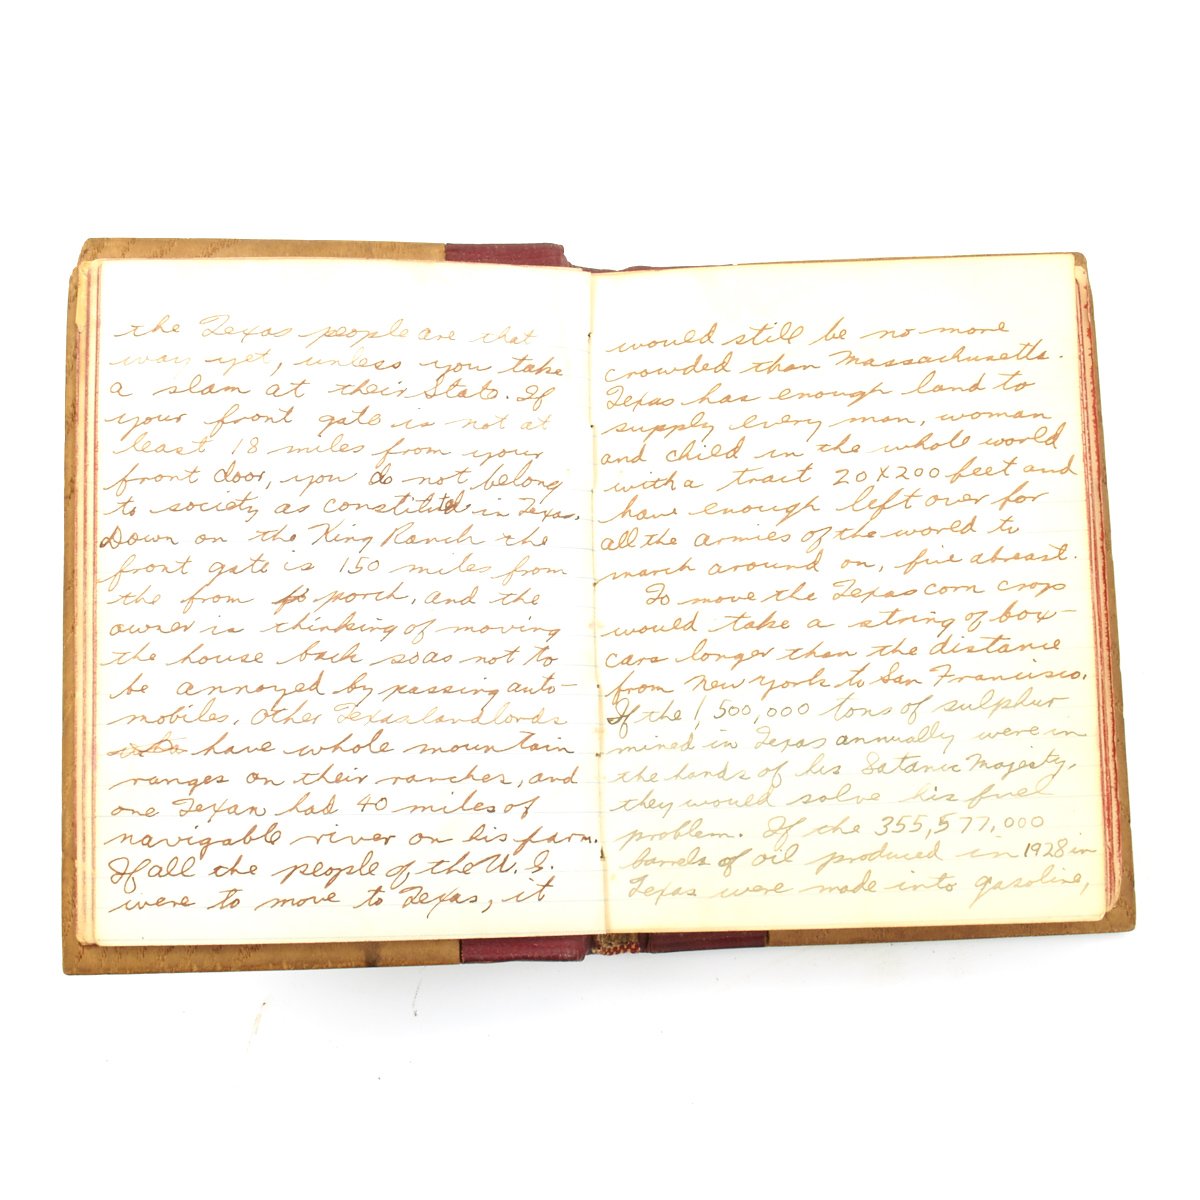 the Texas people are that
way yet, unless you take
a slam at their State. If
your front gate is not at
least 18 miles from your
front door, you do not belong
to society as constituted in Texas.
Down on the King Ranch the
front gate is 150 miles from
the from porch, and the
owner is thinking of moving
the house back so as not to
be annoyed by passing auto-
mobiles. Other Texas landlords
have whole mountain
ranges on their ranches, and
one Texan had 40 miles of
navigable river on his farm.
If all the people of the U.S.
were to move to Texas, it
would still be no more
crowded than Massachusetts.
Texas has enough land to
supply every man, woman
and child in the whole world
with a tract 20 X 200 feet and
have enough left over for
all the armies of the world to
march around on, five abreast.
To move the Texas corn crop
would take a string of box-
cars longer than the distance
from New York to San Francisco.
If the 1,500,000 tons of sulphur
mined in Texas annually were in
the hands of his Satanic Majesty,
they would solve his fuel
problem. If the 355,577,000
barrels of oil produced in 1928 in
Texas were made into gasoline,